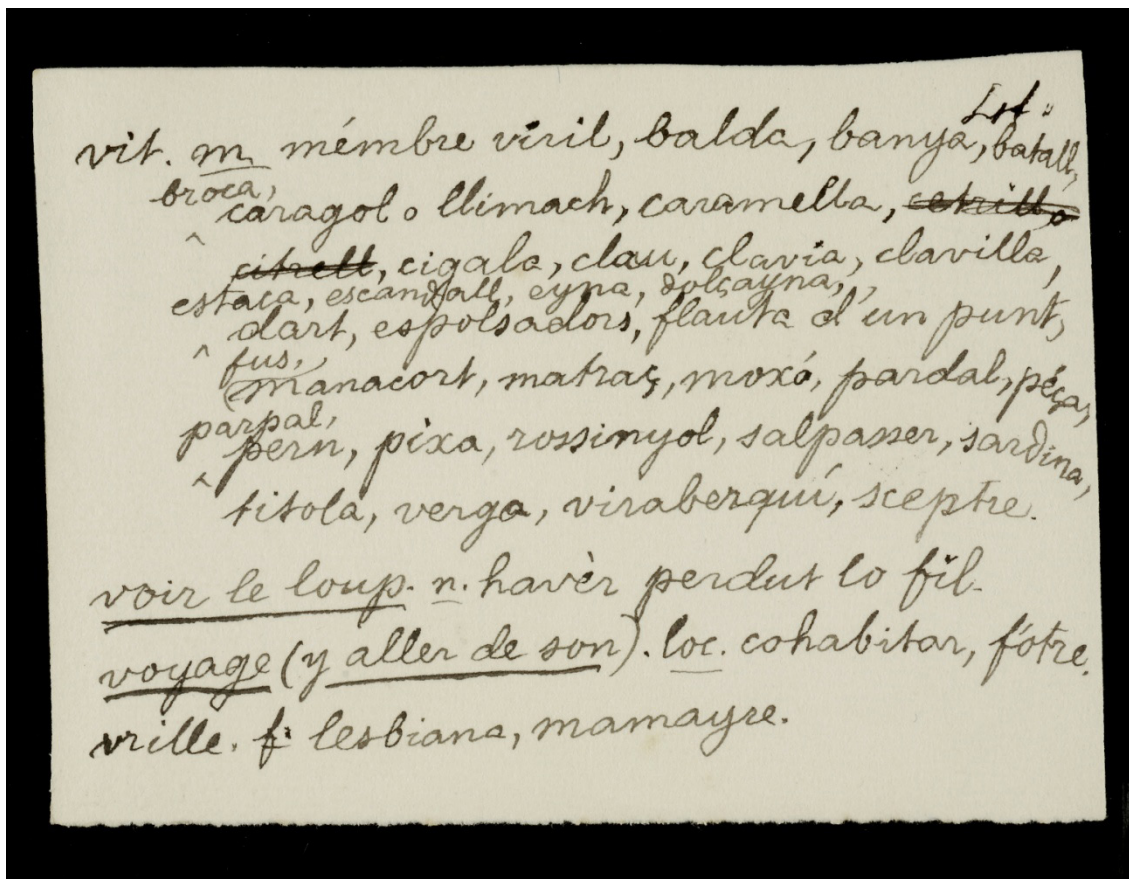 vit. m mémbre viril, balda, banya, batall,
broca,
caragol o llimach, caramella, cetrill,
citrell, cigala, clau, clavia, clavilla,
estaca, escandall, eyna, dolçayna,
dart, espolsadors, flauta d'un punt,
fus,
manacort, matraç, moxó, pardal, péça,
parpal,
pern, pixa, rossinyol, salpasser, sardina,
titola, verga, viraberquí, sceptre.
voir le loup. n. havèr perdut lo fil.
voyage (y aller de son). loc. cohabitar, fótre.
vrille. f. lesbiana, mamayre.